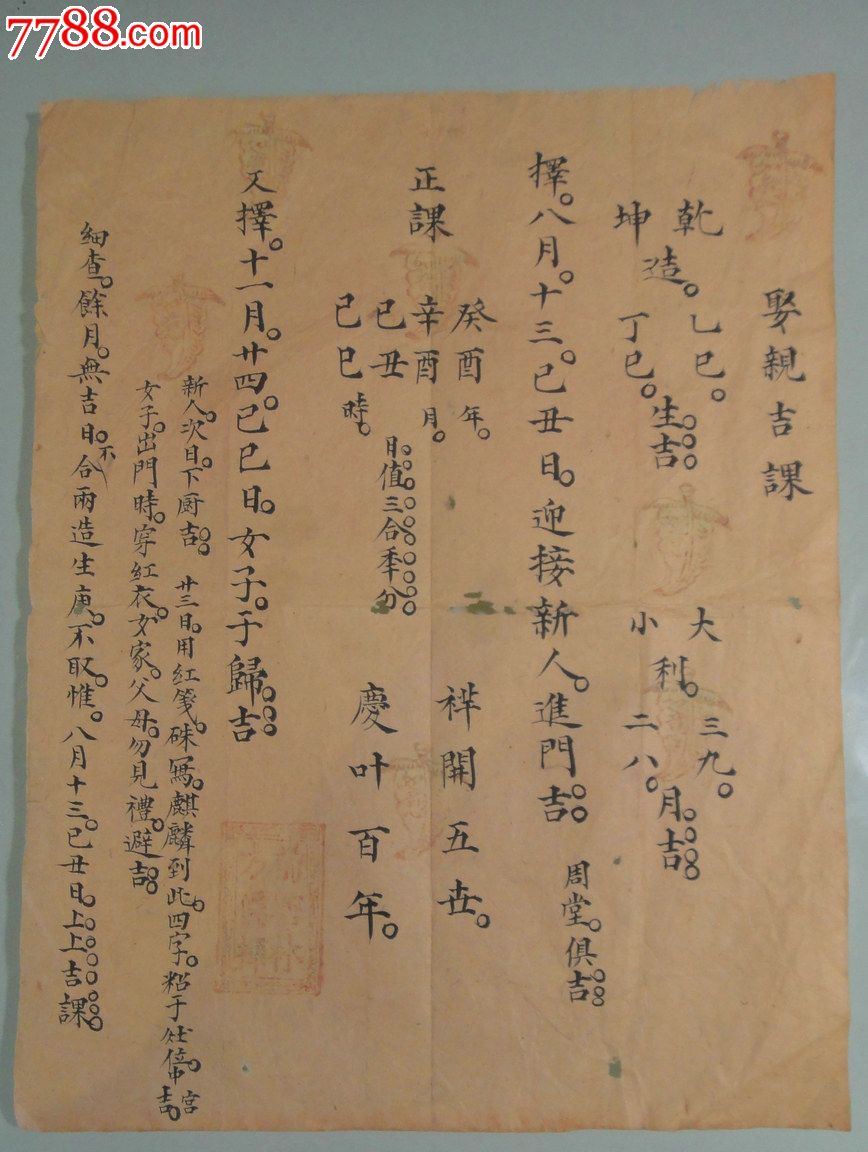 7788.com
娶親吉課
乾造。乙巳。
坤造。丁巳。
生吉
大利。三九。
小利。二八。
月。吉
擇。八月。十三。己丑日。迎接新人。進門吉
周堂。俱吉
正課
癸酉年。
辛酉月。
己丑日。值三合季分
己巳時。
祥開五世。
慶叶百年。
又擇。十一月。廿四。己巳日。女子。于歸。吉
新人。次日。下厨吉。廿三日。用紅箋。硃寫。麒麟到此。四字。粘于灶
宮
吉。
女子。出門時。穿紅衣。女家。父母。勿見禮。避吉
細查。餘月。無吉日。不合兩造生庚。不取。惟。八月十三。己丑日。上上吉課